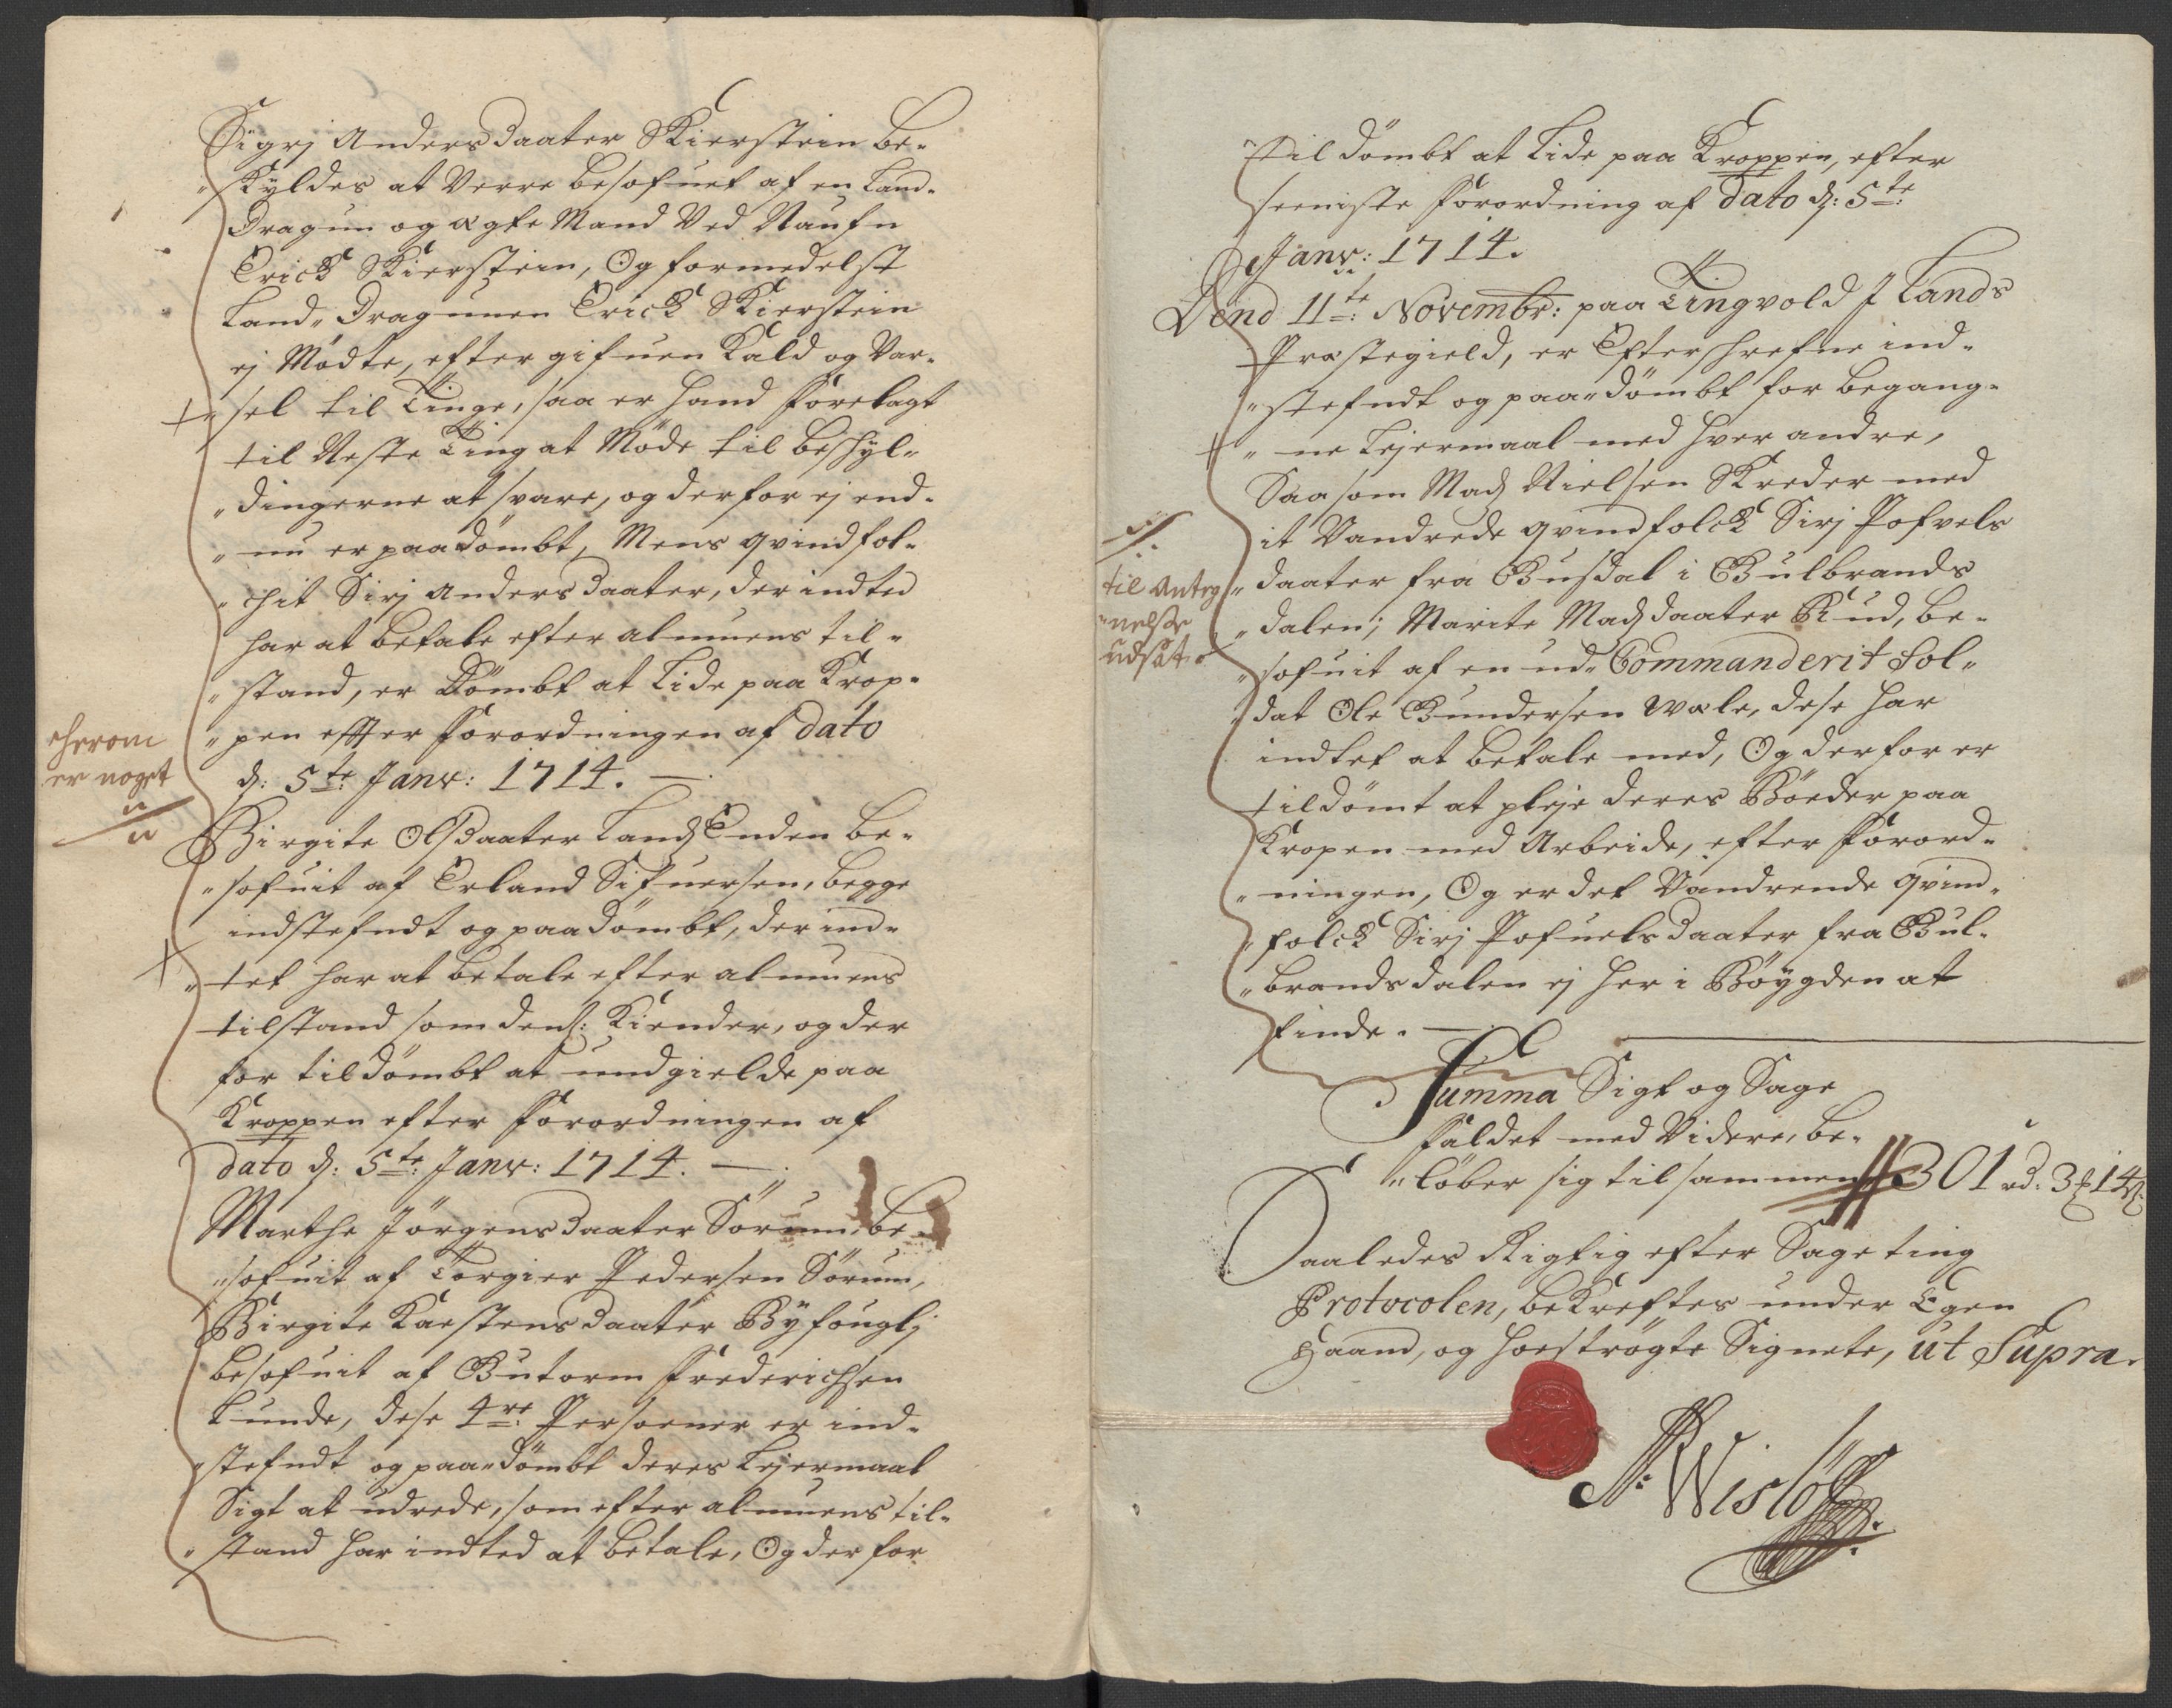 Sigrj Anders daater Skierstein be-
"skyldes at Verre besofuet af en Land-
Dragun og ægte Mand Ved Naufn
Erick Skierstein, Og formedelst
Land-Dragunen Erick Skierstein
ej Mødte, efter gifuen Kald og Var-
"sel til Tinge, saa er hand forelagt
til Neste Ting at Møde til beskyl-
"dingerne at svare, og derfor ej end-
"nu er paadömbt, Mens qvindfol-
"chit Sirj Anders daater, der indted
har at betale efter almuens til-
"stand, er Dömbt at Lide paa Krop-
"pen effter forordningen af dato
d: 5te Janv: 1714.
herom
er noget
Birgite Olsdaater Lands Enden be-
"sofuit af Erland Sifuersen, begge
indstefndt og paadömbt, der ind-
"tet har at betale efter almuens
tilstand som dend: Kiender, og der
for tildömbt at undgielde paa
Kroppen efter forordningen af
dato d: 5te Janv: 1714.
Marthe Jörgens daater Sörum, be-
"sofuit af Torgier Pedersen Sörum,
Birgite Karstens daater Byfouglj
besofuit af Gutorm Frederichsen
Lunde, dese 4re Persoener er ind-
"stefndt og paa-dömbt deres Lejermaal
Sigt at udrede, som efter almuens til-
"stand har indted at betale, Og der for
til dömbt at Lide paa Kroppen, efter
seeniste forordning af dato d: 5te
Janv: 1714.
Dend 11te Novembr: paa Tingvold J Lands
Præstegield, er Efterskrefne ind-
"stefndt og paa-dömbt for begang-
"ne Lejermaal med hver andre,
Saasom Mads Nielsen Skreder med
it Vandrede qvindfolck Sirj Pofvels
"daater fra Busdal i Gulbrands
"dalen; Marite Mads daater Rud, be-
"sofuit af en ud-Commanderit Sol-
"dat Ole Gundersen Wæle, dese har
indtet at betale med, Og derfor er
tildömt at pleje deres Böeder paa
Kropen med Arbeide, efter forord-
"ningen, Og er det Vandrende qvind-
"folck Sirj Pofuels daater fra Gul-
"brandsdalen ej her i Böygden at
finde.
til Anteg
"nelse
udsat
Summa Sigt og Sage
fäldet med Videre, be-
"löber sig tilsammen 301 rd: 3 14
Saaledes Rigtig efter Sageting
Protocolen, bekreftes under Egen
Haand, og hoeströgte Signete, ut Supra.
N: Wislöff